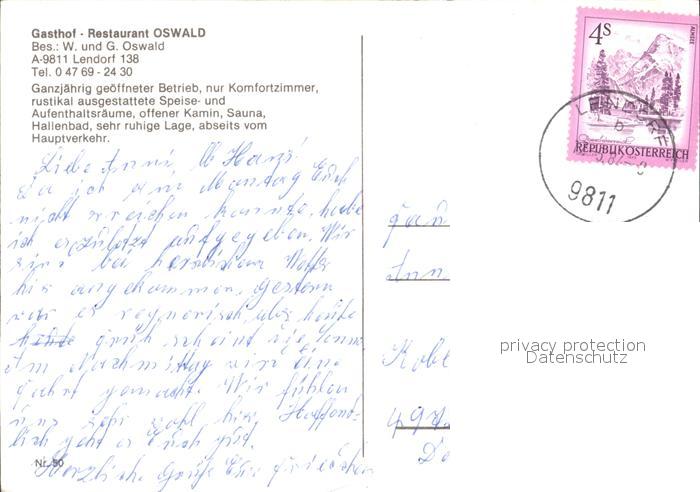 Gasthof - Restaurant OSWALD
Bes.: W. und G. Oswald
A-9811 Lendorf 138
Tel. 0 47 69 - 24 30
Ganzjährig geöffneter Betrieb, nur Komfortzimmer,
rustikal ausgestattete Speise- und
Aufenthaltsräume, offener Kamin, Sauna,
Hallenbad, sehr ruhige Lage, abseits vom
Hauptverkehr.
Liebe Anni, lb Hans!
Da ich am Montag Euch
nicht erreichen konnte, habe
ich es zuletzt aufgegeben. Wir
sind bei Wetter
hir angekommen, gestern
war es regnerisch, aber heute
früh scheint die Sonne
Am Nachmittag wird eine
Fahrt gemacht. Wir fühlen
uns sehr wohl hir, Hoffent-
lich geht es Euch gut.
Herzliche Grüße Eure
Nr. 50
4S
ALMSEE
REPUBLIK ÖSTERREICH
LENDORF
b
9811
Ann
Kobe
privacy protection
Datenschutz